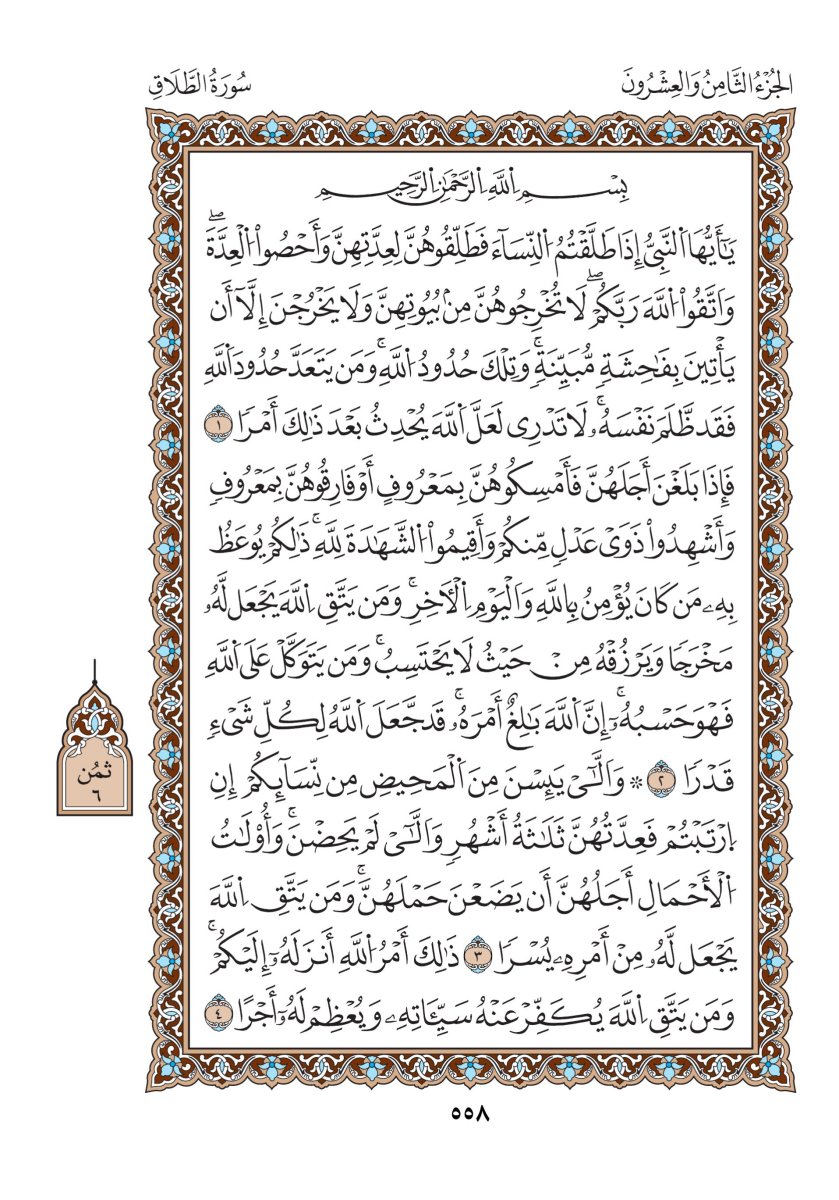 الجُزْءُ الثَّامِنُ وَالعِشْرُونَ
سُورَةُ الطَّلَاقِ
بِسْمِ اِ۬للَّهِ اِ۬لرَّحْمَٰنِ اِ۬لرَّحِيمِ
يَٰٓأَيُّهَا اَ۬لنَّبِيُّ إِذَا طَلَّقْتُمُ اُ۬لنِّسَآءَ فَطَلِّقُوهُنَّ لِعِدَّتِهِنَّ وَأَحْصُوا۟ اُ۬لْعِدَّةَۖ
وَاتَّقُوا۟ اُ۬للَّهَ رَبَّكُمْۖ لَا تُخْرِجُوهُنَّ مِنۢ بُيُوتِهِنَّ وَلَا يَخْرُجْنَ إِلَّآ أَن
يَأْتِينَ بِفَٰحِشَةٍ مُّبَيِّنَةٍۚ وَتِلْكَ حُدُودُ اُ۬للَّهِۚ وَمَن يَتَعَدَّ حُدُودَ اَ۬للَّهِ
فَقَد ظَّلَمَ نَفْسَهُۥۚ لَا تَدْرِى لَعَلَّ اَ۬للَّهَ يُحْدِثُ بَعْدَ ذَٰلِكَ أَمْرًا ١
فَإِذَا بَلَغْنَ أَجَلَهُنَّ فَأَمْسِكُوهُنَّ بِمَعْرُوفٍ أَوْ فَارِقُوهُنَّ بِمَعْرُوفٍ
وَأَشْهِدُوا۟ ذَوَىْ عَدْلٍ مِّنكُمْ وَأَقِيمُوا۟ اُ۬لشَّهَٰدَةَ لِلَّهِۚ ذَٰلِكُمْ يُوعَظُ
بِهِۦ مَن كَانَ يُؤْمِنُ بِاللَّهِ وَالْيَوْمِ اِ۬لْأٓخِرِۚ وَمَن يَتَّقِ اِ۬للَّهَ يَجْعَل لَّهُۥ
مَخْرَجًا وَيَرْزُقْهُ مِنْ حَيْثُ لَا يَحْتَسِبُۚ وَمَن يَتَوَكَّلْ عَلَى اَ۬للَّهِ
فَهْوَ حَسْبُهُۥٓۚ إِنَّ اَ۬للَّهَ بَٰلِغٌ أَمْرَهُۥۚ قَد جَّعَلَ اَ۬للَّهُ لِكُلِّ شَىْءٍ
قَدْرًا ٢ ۞ وَالَّٰٓىْ يَئِسْنَ مِنَ اَ۬لْمَحِيضِ مِن نِّسَآئِكُمْ إِنِ
اِ۪رْتَبْتُمْ فَعِدَّتُهُنَّ ثَلَٰثَةُ أَشْهُرٍ وَالَّٰٓىْ لَمْ يَحِضْنَۚ وَأُو۟لَٰتُ
اُ۬لْأَحْمَالِ أَجَلُهُنَّ أَن يَضَعْنَ حَمْلَهُنَّۚ وَمَن يَتَّقِ اِ۬للَّهَ
يَجْعَل لَّهُۥ مِنْ أَمْرِهِۦ يُسْرًا ٣ ذَٰلِكَ أَمْرُ اُ۬للَّهِ أَنزَلَهُۥٓ إِلَيْكُمْۚ
وَمَن يَتَّقِ اِ۬للَّهَ يُكَفِّرْ عَنْهُ سَيِّـَٔاتِهِۦ وَيُعْظِمْ لَهُۥٓ أَجْرًا ٤
ثمُن
٦
٥٥٨